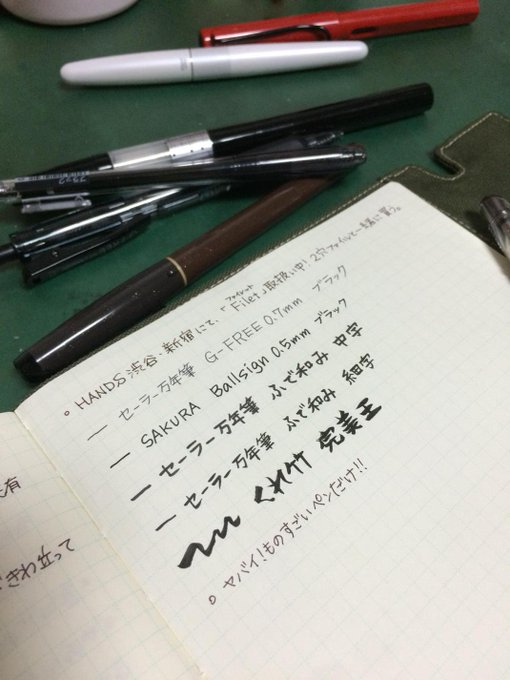 。HANDS 渋谷・新宿にて、「Filet」取扱い中! 2穴ファイルと一緒に買う。
ファイレット
— セーラー万年筆 G-FREE 0.7mm ブラック
— SAKURA Ballsign 0.5mm ブラック
— セーラー万年筆 ふで和み 中字
— セーラー万年筆 ふで和み 細字
くれ竹 完美王
。ヤバイ!ものすごいペンだけ!!
有
きわ立って
ブラック